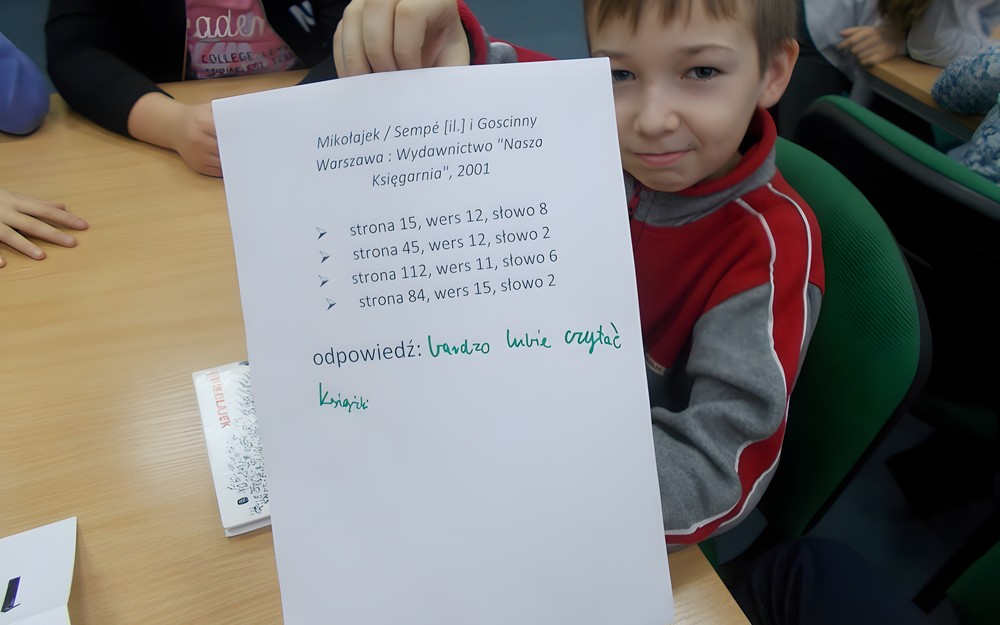 Mikołajek / Sempé [il.] i Goscinny
Warszawa : Wydawnictwo "Nasza
Księgarnia", 2001
➢ strona 15, wers 12, słowo 8
➢ strona 45, wers 12, słowo 2
➢ strona 112, wers 11, słowo 6
➢ strona 84, wers 15, słowo 2
odpowiedź: bardzo lubie czytać
Książki
COLLEGE